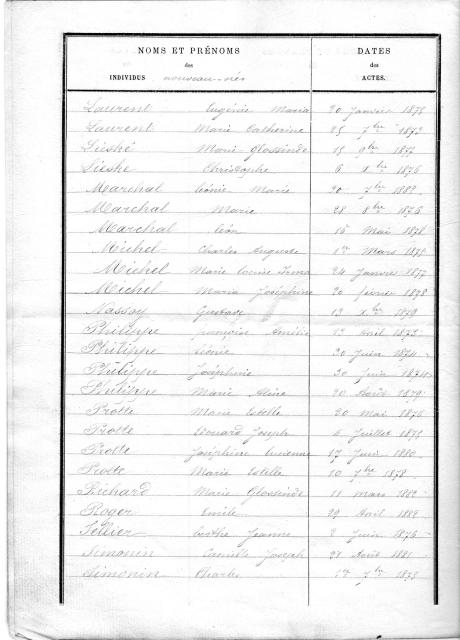 NOMS ET PRÉNOMS
des
INDIVIDUS nouveau-nés
DATES
des
ACTES.
Laurent Eugénie Maria 20 Janvier 1875
Laurent Marie Catherine 25 7bre 1873
Lieshé Marie Glossinde 15 9bre 1877
Lieshe Christophe 6 1876
Marchal Léonie Marie 20 7bre 1882
Marchal Marie 28 8bre 1876
Marchal Léon 15 Mai 1878
Michel Charles Auguste 1er Mars 1875
Michel Marie Louise Irma 24 Janvier 1877
Michel Maria Joséphine 20 février 1878
Nassoy Gustave 13 xbre 1879
Philippe françoise Amélie 12 Avril 1873
Philippe Léonie 30 Juin 1874
Philippe Joséphine 30 Juin 1874
Philippe Marie Aline 20 Août 1879
Protte Marie Estelle 20 Mai 1876
Protte Edouard Joseph 6 Juillet 1879
Protte Joséphine Lucienne 17 Juin 1880
Marie Estelle 10 7bre 1878
Richard Marie Glossinde 11 mars 1882
Roger Emile 29 Avril 1882
Sellier Jeanne 2 Juin 1875
Simonin Camille Joseph Août 1881
Simonin Charles 7bre 1875